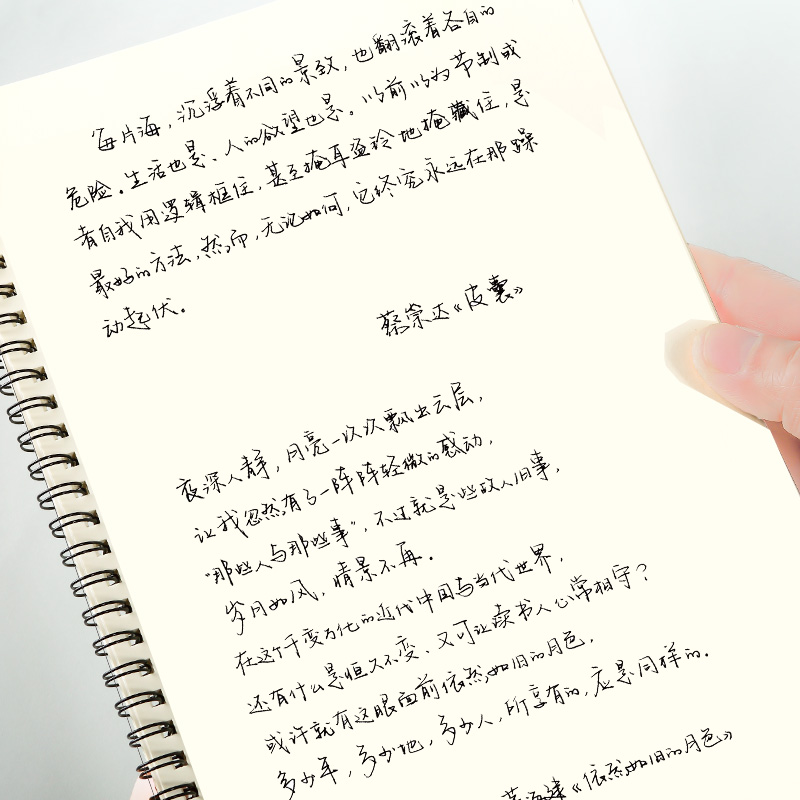 每片海，沉浮着不同的景致，也翻滚着各自的
危险。生活也是、人的欲望也是。以前以为节制或
者自我用逻辑框住，甚至掩耳盗铃地掩藏住，是
最好的方法，然而，无论如何，它终究永远在那躁
动起伏。
蔡崇达《皮囊》
夜深人静，月亮一次次飘出云层，
让我忽然有了一阵阵轻微的感动，
“那些人与那些事”，不过就是些故人旧事，
岁月如风，情景不再。
在这个千变万化的近代中国与当代世界，
还有什么是恒久不变、又可让读书人心常相守？
或许就有这眼面前依然如旧的月色，
多少年，多少地，多少人，所享有的，应是同样的。
《依然如旧的月色》